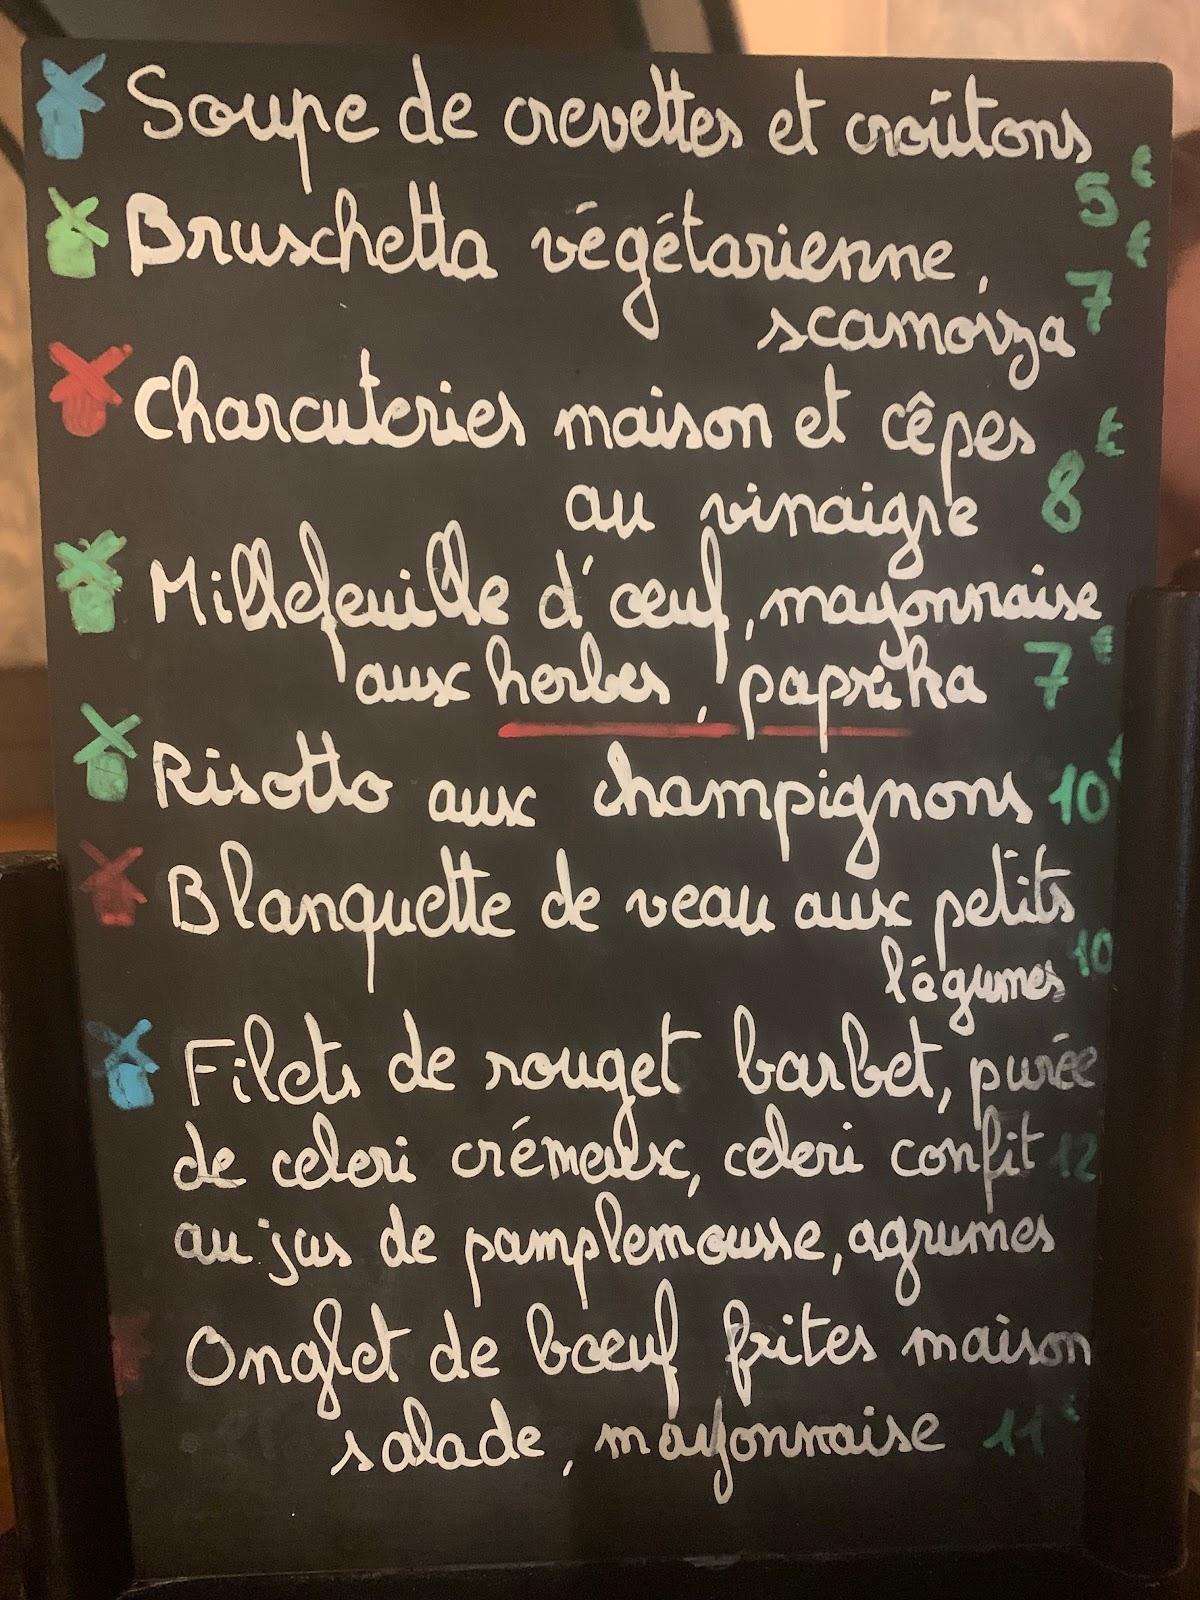 Soupe de crevettes et croûtons
5€
Bruschetta végétarienne, 7€
scamorza
Charcuteries maison et cêpes
au vinaigre 8€
Millefeuille d'œuf, mayonnaise
aux herbes, paprika 7€
Risotto aux champignons 10€
Blanquette de veau aux petits
légumes 10
Filets de rouget barbet, purée
de celeri crémeux, celeri confit 12
au jus de pamplemousse, agrumes
Onglet de bœuf frites maison
salade, mayonnaise 11€